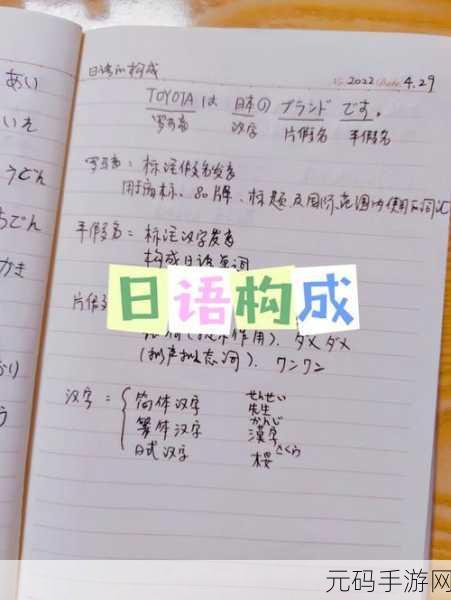 あい
いえ
うどん
かき
日语的构成
2022 4.29
TOYOTA は 日本の ブランド です。
罗马音 汉字 片假名 平假名
罗马音：标注假名发音
用于商标、品牌、标题及国际范围内使用的词汇
平假名：标注汉字发音
构成日语单词
日语构成
片假
作用)、ダメダメ
(拟声拟态词)、ワンワン
汉字= 简体汉字 せんせい 先生
繁体汉字 かんじ 漢字
日式汉字 さくら 桜
元码手游网